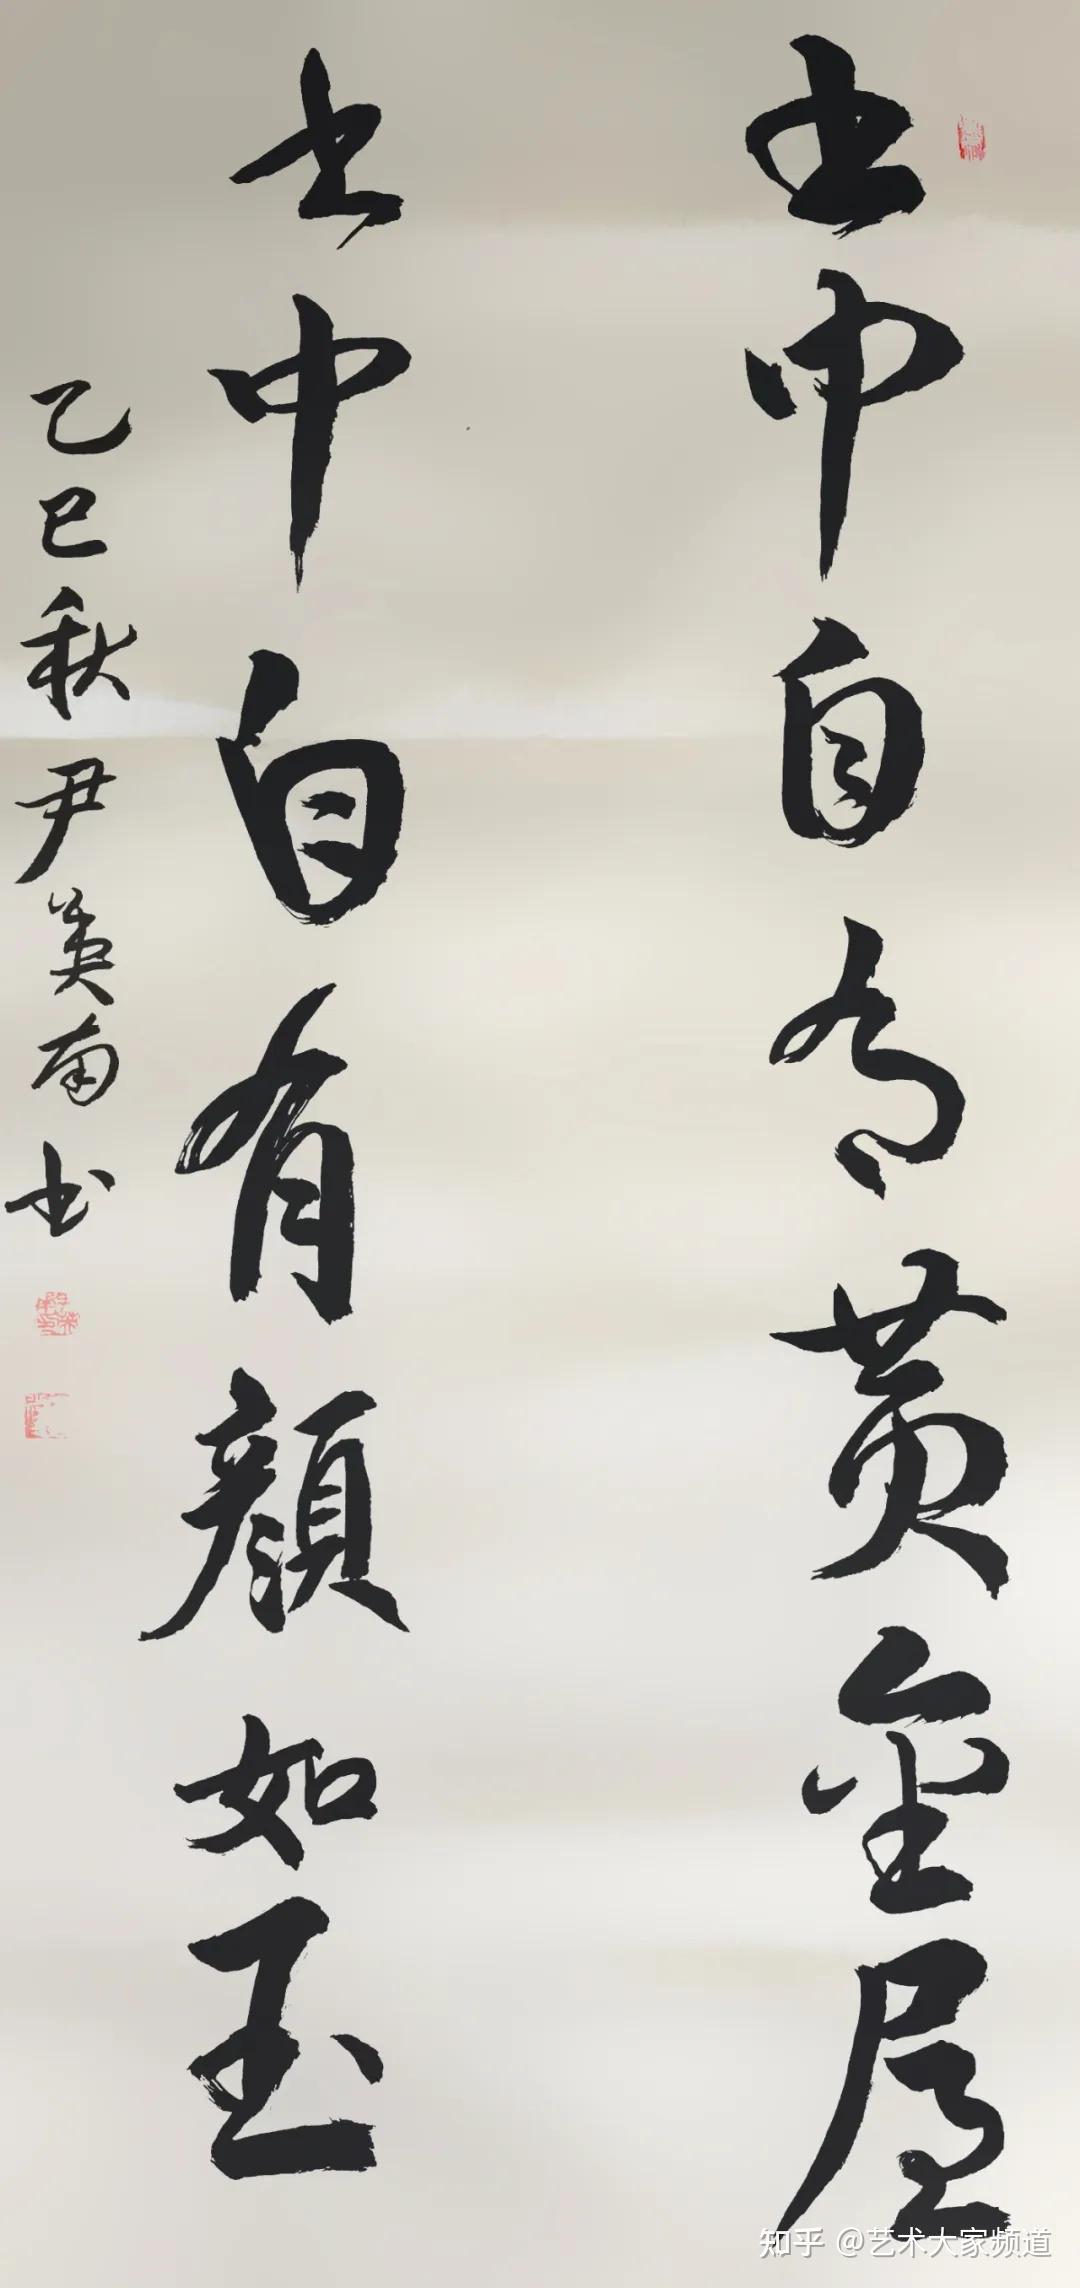 书中自有黄金屋
书中自有颜如玉
乙巳秋尹英南书
知乎 @艺术大家频道